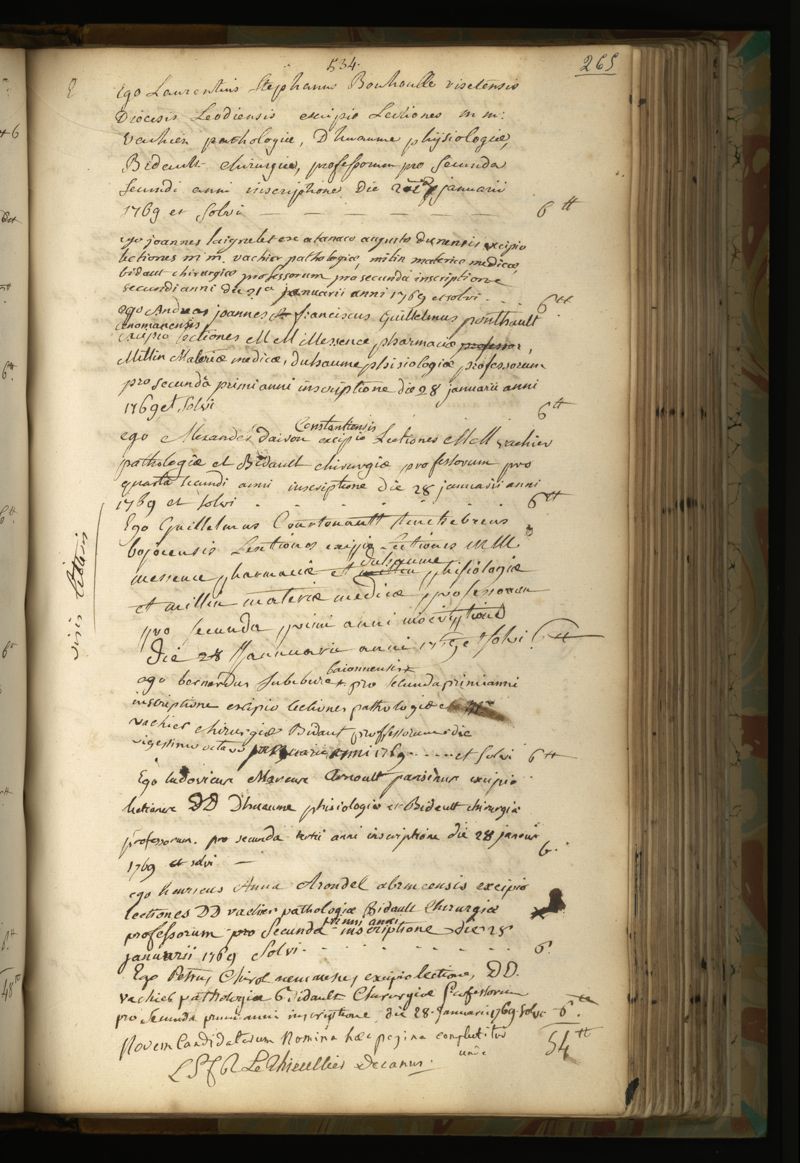 534.
265
Ego Laurentius Stephanus Bouhoulle visetensis
Diocesis Leodiensis excipio Lectiones mm:
Vachier pathologiæ, Dhuaume physiologiæ,
Bidault chirurgiæ, professorum pro secunda
secundi anni inscriptione Die januarii
1769 et solvi — — — — — 6 ₶
ego joannes laignelet ex augusto dunensis excipio
lectiones m m. vachier pathologiæ, milin materiæ medicæ,
bidaut chirurgiæ professorum pro secunda inscriptione
secundi anni die 21a januarii anni 1769 et solvi . . . 6₶
ego Andreas joannes franciscus Guillelmus ponthault
cenomanensis
excipio lectiones M M Messence pharmaciæ professor,
Millin Materiæ medicæ, duhaume phisiologiæ professorum
pro secundâ primi anni inscriptione die 28 januarii anni
1769 et solvi 6₶
Constantiensis
ego Alexander daivon excipio Lectiones MM vachier
pathologiæ et Bidault chirurgiæ professorum pro
quarta secundi anni inscriptione die 28 januarii anni
1769 et solvi . . . . . . 6₶
Ego Guillelmus Courtonault
bajocensis Lectiones excipio Lectiones MM
duhaume
messence pharmaciæ et millin phisiologiæ
et millin materiæ medicæ professorum
pro secunda primi anni inscriptione
Die 28 Januarii anni 1769 et solvi 6₶
baionnensis
ego bernardus pro secunda primi anni
inscriptione excipio lectiones pathologiæ
vachier chirurgiæ Bidaut professorum die
vigesimo octavo januarii anni 1769 . . . . et solvi 6₶
Ego ludovicus Marcus Arnoult parisinus excipio
lectiones DD Dhuaume phisiologiæ et Bidault chirurgiæ
professorum. pro secunda tertii anni inscriptione die 28 januar
1769 et solvi — 6.
ego henricus Anna Arondel abrincensis excipio
lectiones DD vachier pathologiæ Bidault Chirurgiæ
primi anni
professorum pro secunda inscriptione die 28
januarii 1769 solvi . . . . . . 6.
Ego Petrus Chirol nemausensis excipio lectiones DD.
vachier pathologiæ Bidault Chirurgiæ Professorum
pro secunda primi anni inscriptione die 28 Januarii 1769 solvi 6₶
Novem Candidatorum Nomina hæc pagina complectitur
unde 54₶
LSFR Le Thieullier Decanus.
visis litteris